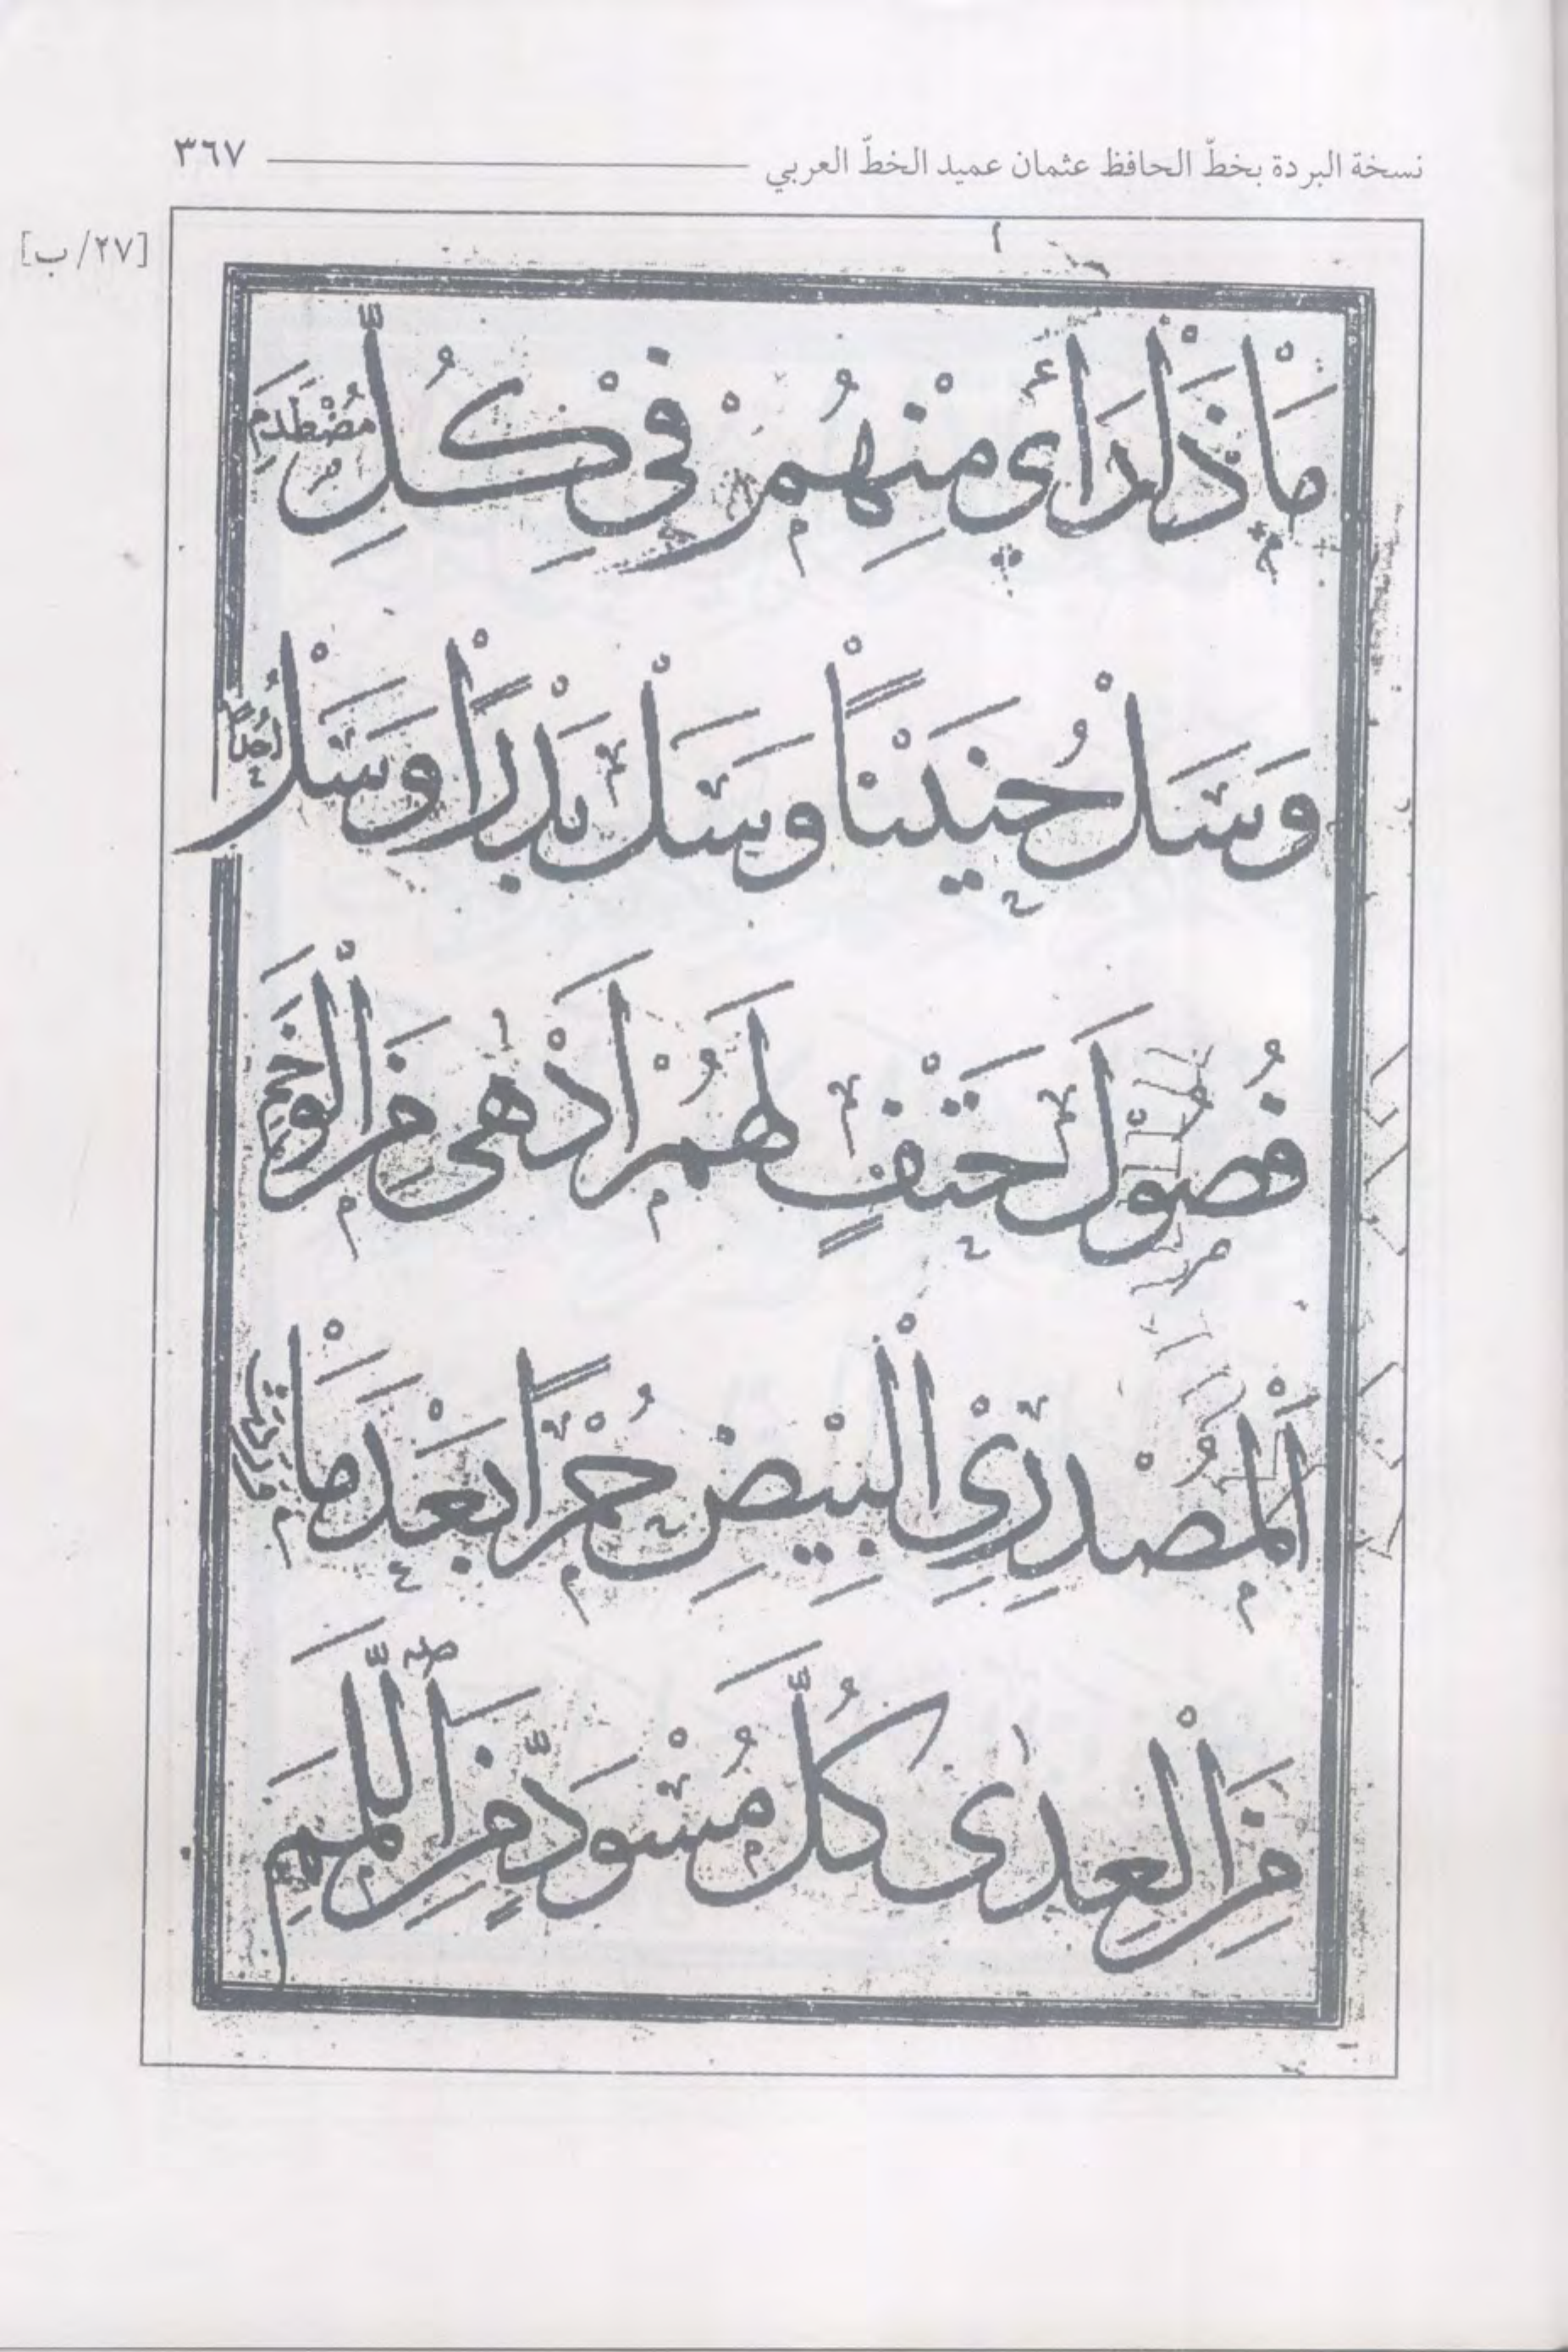 نسخة البردة بخطّ الحافظ عثمان عميد الخطّ العربي ٣٦٧
[٢٧/ ب]
مَاْذَاْ رَأَي مِنْهُمْ فِيْ كُلِّ مُصْطَدَمِ
وَسَلْ حُنَيْنْاً وَسَلْ بَدْرَاً وَسَلْ أُحُدًا
فُصُوْلَ حَتْفٍ لَهُمْ اَدْهٰى مِنَ الْوَخَمِ
اَلْمُصْدِرِي الْبِيْضِ حُمْرًا بَعْدَ مَاْ وَرَدَتْ
مِنَ الْعِدٰى كُلَّ مُسْوَدٍّ مِنَ اللَّمَمِ